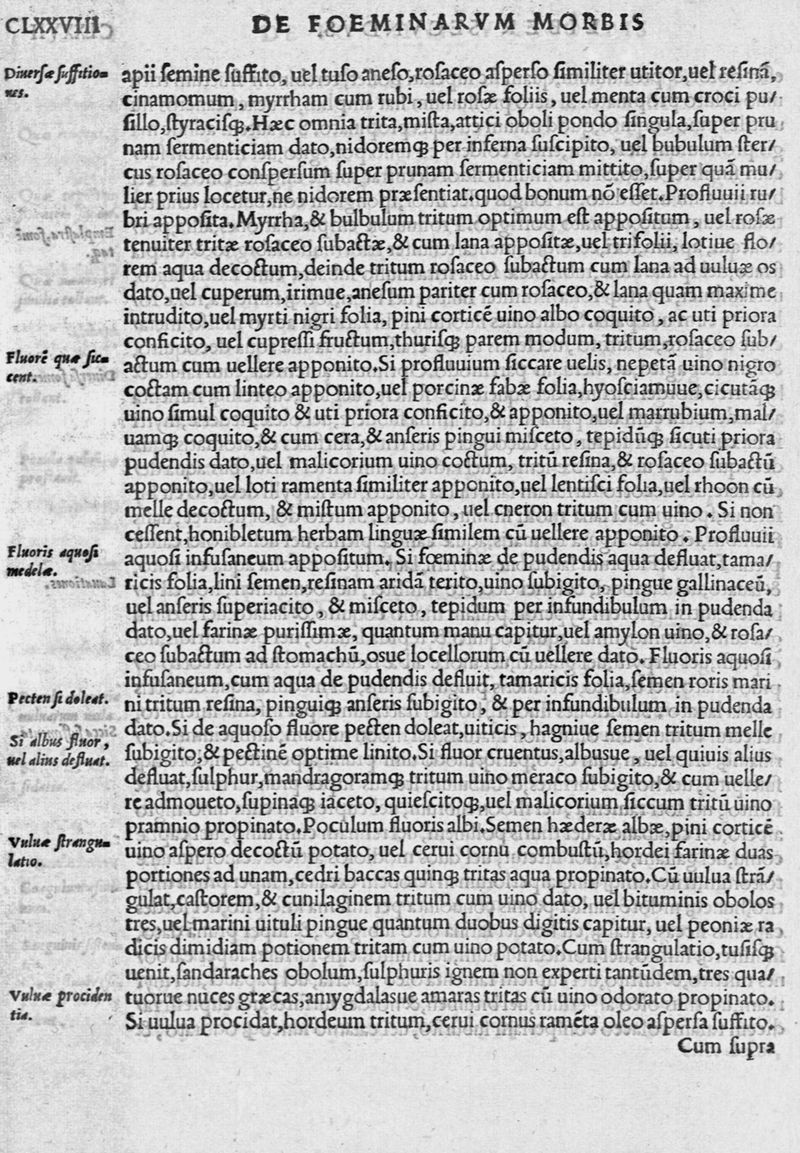 CLXXVIII
DE FOEMINARVM MORBIS
Diuersæ suffitio=
nes.
apii semine suffito, uel tuso aneso,rosaceo asperso similiter utitor,uel resinā,
cinamomum, myrrham cum rubi, uel rosæ foliis, uel menta cum croci pu/
sillo,styracisq;.Hæc omnia trita,mista,attici oboli pondo singula,super pru
nam sermenticiam dato,nidoremq; per inferna suscipito, uel bubulum ster/
cus rosaceo conspersum super prunam sermenticiam mittito,super quā mu/
lier prius locetur,ne nidorem præsentiat.quod bonum nō esset.Profluuii ru/
bri apposita.Myrrha,& bulbulum tritum optimum est appositum, uel rosæ
tenuiter tritæ rosaceo subactæ,& cum lana appositæ,uel trifolii, lotiue flo/
rem aqua decoctum,deinde tritum rosaceo subactum cum lana ad uuluæ os
dato,uel cuperum,irimue,anesum pariter cum rosaceo,& lana quam maxime
intrudito,uel myrti nigri folia, pini corticē uino albo coquito, ac uti priora
conficito, uel cupressi fructum,thurisq; parem modum, tritum,rosaceo sub/
Fluorē quæ sic=
cent.
actum cum uellere apponito.Si profluuium siccare uelis, nepetā uino nigro
coctam cum linteo apponito,uel porcinæ fabæ folia,hyosciamuue,cicutāq;
uino simul coquito & uti priora conficito,& apponito,uel marrubium,mal/
uamq; coquito,& cum cera,& anseris pingui misceto, tepidūq; sicuti priora
pudendis dato,uel malicorium uino coctum, tritū resina,& rosaceo subactū
apponito,uel loti ramenta similiter apponito,uel lentisci folia,uel rhoon cū
melle decoctum, & mistum apponito, uel cneron tritum cum uino. Si non
cessent,honibletum herbam linguæ similem cū uellere apponito. Profluuii
Fluoris aquosi
medelæ.
aquosi infusaneum appositum. Si fœminæ de pudendis aqua defluat,tama/
ricis folia,lini semen,resinam aridā terito,uino subigito, pingue gallinaceū,
uel anseris superiacito, & misceto, tepidum per infundibulum in pudenda
dato,uel farinæ purissimæ, quantum manu capitur,uel amylon uino,& rosa/
ceo subactum ad stomachū,osue locellorum cū uellere dato. Fluoris aquosi
infusaneum,cum aqua de pudendis defluit, tamaricis folia,semen roris mari
ni tritum resina, pinguiq; anseris subigito, & per infundibulum in pudenda
Pecten si doleat.
dato.Si de aquoso fluore pecten doleat,uiticis, hagniue semen tritum melle
Si albus fluor,
uel alius defluat.
subigito,& pectinē optime linito.Si fluor cruentus,albusue, uel quiuis alius
defluat,sulphur,mandragoramq; tritum uino meraco subigito,& cum uelle/
re admoueto,supinaq; iaceto, quiescitoq;,uel malicorium siccum tritū uino
pramnio propinato.Poculum fluoris albi.Semen hæderæ albæ,pini corticē
Vuluæ strangu=
latio.
uino aspero decoctū potato, uel cerui cornu combustū,hordei farinæ duas
portiones ad unam,cedri baccas quinq; tritas aqua propinato.Cū uulua strā/
gulat,castorem,& cunilaginem tritum cum uino dato, uel bituminis obolos
tres,uel marini uituli pingue quantum duobus digitis capitur, uel peoniæ ra
dicis dimidiam potionem tritam cum uino potato.Cum strangulatio,tusisq;
uenit,sandaraches obolum,sulphuris ignem non experti tantūdem,tres qua/
Vuluæ prociden
tia.
tuorue nuces græcas,amygdalasue amaras tritas cū uino odorato propinato.
Si uulua procidat,hordeum tritum,cerui cornus ramēta oleo aspersa suffito.
Cum supra